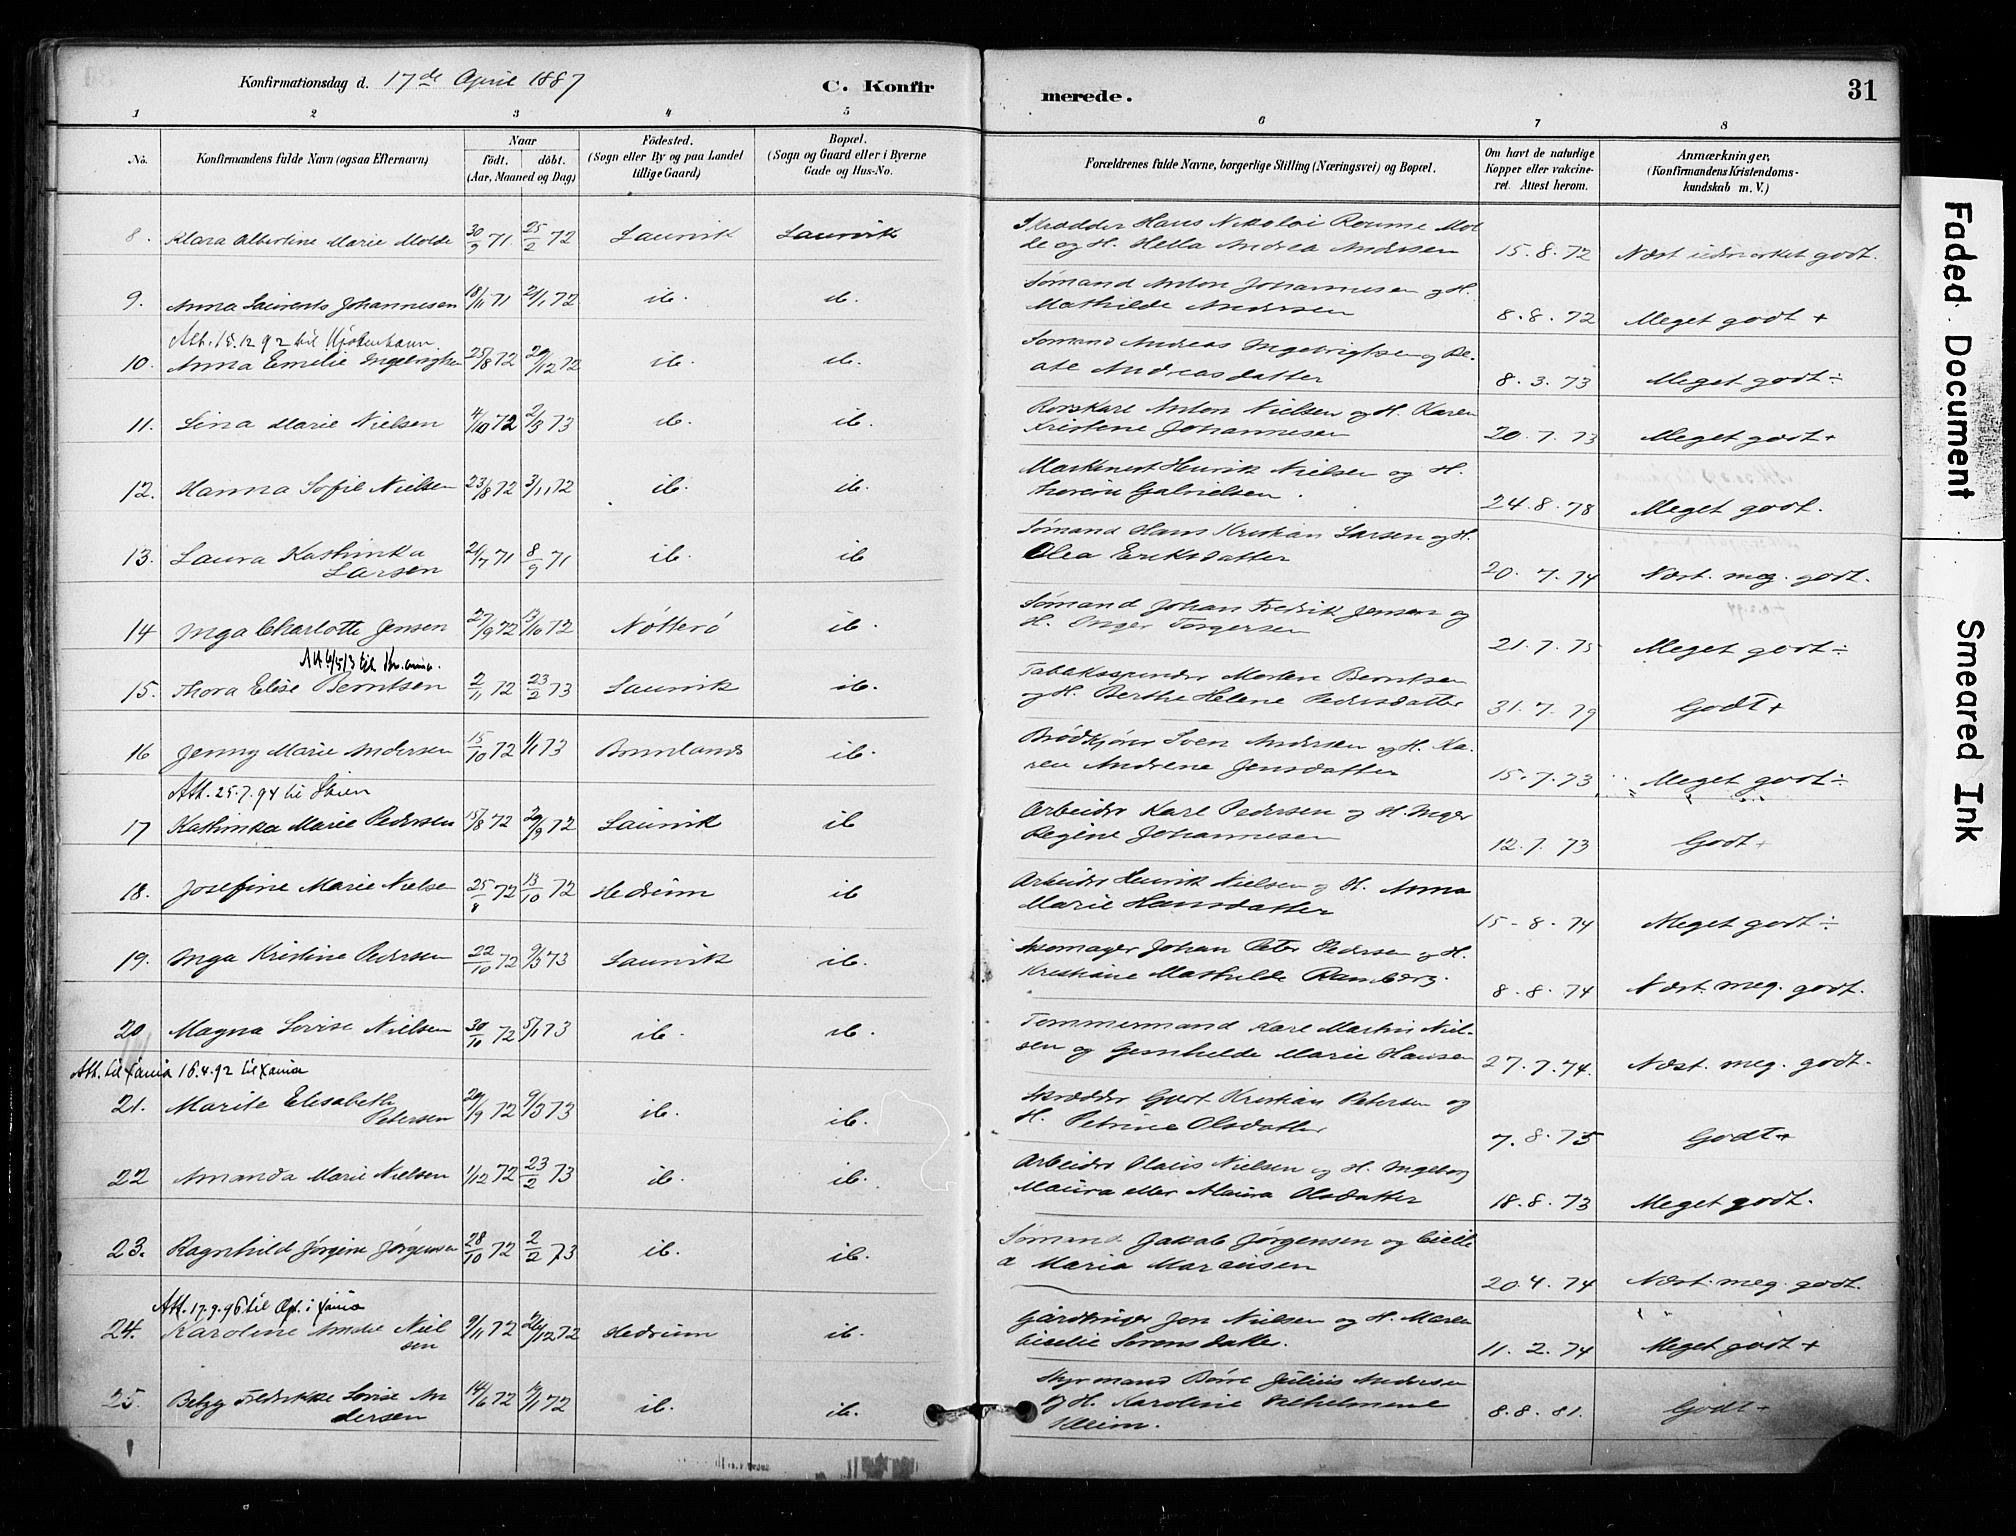 Konfirmationsdag d. 17de April 1887
C. Konfirmerede.
31
1 2 3 4 5 6 7 8
No.
Konfirmandens fulde Navn (ogsaa Efternavn)
Naar
födt. döbt.
(Aar, Maaned og Dag)
Födested.
(Sogn eller By og paa Landet
tillige Gaard)
Bopæl.
(Sogn og Gaard eller i Byerne
Gade og Hus-No.
Forældrenes fulde Navne, borgerlige Stilling (Næringsvei) og Bopæl.
Om havt de naturlige
Kopper eller vakcine-
ret. Attest herom.
Anmærkninger,
(Konfirmandens Kristendoms-
kundskab m. V.)
8. Klara Albertine Marie Molde 30/9 71 25/2 72 Laurvik Laurvik
Skrædder Hans Nikolai Roume Mol-
de og H. Hella Andrea Andersen 15.8.72 Næst udmerket godt.
9. Anna Laurents Johannesen 18/11 71 21/1 72 ib. ib.
Sømand Anton Johannesen og H.
Mathilde Andersen 8.8.72 Meget godt +
Att. 15.12 92 til Kjøbenhavn.
10. Anna Emilie Ingebrigtsen 25/8 72 29/12 72 ib. ib.
Sømand Andreas Ingebrigtsen og Be-
ate Andreasdatter 8.3.73 Meget godt ÷
11. Lina Marie Nielsen 4/10 72 2/3 73 ib. ib.
Rorskarl Anton Nielsen og H. Karen
Kristene Johannesen 20.7.73 Meget godt +
12. Hanna Sofie Nielsen 23/8 72 3/11 72 ib. ib.
Maskinest Henrik Nielsen og H.
Gabrielsen 24.8.78 Meget godt.
13. Laura Kathinka
Larsen 21/7 71 8/9 71 ib. ib
Sømand Hans Kristian Larsen og H.
Olea Eriksdatter 20.7.74 Næst. meg. godt.
14 Inga Charlotte Jensen 27/9 72 13/10 72 Nötterö ib.
Sømand Johan Fredrik Jensen og
H. Inger Torgersen 21.7.75 Meget godt ÷
Att 6/5 13 til Kr.ania.
15. Thora Elise Berntsen 2/11 72 23/2 73 Laurvik ib.
Tabaksspinder Morten Berntsen
og H. Berthe Helene Pedersdatter 31.7.79 Godt +
16 Jenny Marie Andersen 15/10 72 1/1 73 Brunlanes ib.
Brødkjører Sven Andersen og H. Ka-
ren Andrene Jensdatter 15.7.73 Meget godt ÷
Att. 25.7.94 til Skien
17 Kathinka Marie Pedersen 15/8 72 29/9 72 Laurvik ib
Arbeider Karl Pedersen og H. Inger
Regine Johannesen 12.7.73 Godt +
18. Josefine Marie Nielsen 25/8 72 13/10 72 Hedrum ib
Arbeider Henrik Nielsen og H. Anna
Marie Hansdatter 15-8-74 Meget godt ÷
19. Inga Kristine Pedersen 22/10 72 9/3 73 Laurvik ib.
Skomager Johan Peter Pedersen og H.
Kristiane Mathilde Ramberg. 8.8.74 Næst. meg. godt.
20. Magna Lovise Nielsen 30/10 72 5/1 73 ib. ib.
Tømmermand Karl Martin Niel-
sen og Gunhilde Marie Hansen 27.7.74. Næst. meg. godt.
Att. til Xania 16.4.92 til Xania
21. Marite Elisabeth
Petersen 29/9 72 9/3 73 ib. ib.
Skrædder Gjert Kristian Petersen og
H. Petrine Olsdatter 7.8.75 Godt +
22 Amanda Marie Nielsen 1/12 72 23/2 73 ib. ib.
Arbeider Olaus Nielsen og H. Ingeborg
Maura eller Alaura Olsdatter 18.8.73 Meget godt.
23. Ragnhild Jørgine Jørgensen 28/10 72 2/2 73 ib. ib.
Sømand Jakob Jørgensen og Cicili-
a Maria Marensen 20.4.74 Næst. meg. godt.
Att. 17.9.96 til Opl. i Xania
24. Karoline Amalie Niel
sen 9/11 72 26/12 72 Hedrum ib.
Gårdbruger Jon Nielsen og H. Maren
Cicilie Sorensdatter. 11.2.74 Meget godt +
25. Betzy Fredrikke Lovise An
dersen 14/6 72 ib. ib.
Styrmand Börre Julius Andersen
og H. Karoline Vilhelmene
Kleim. 8.8.81. Godt +
Faded Document
Smeared Ink